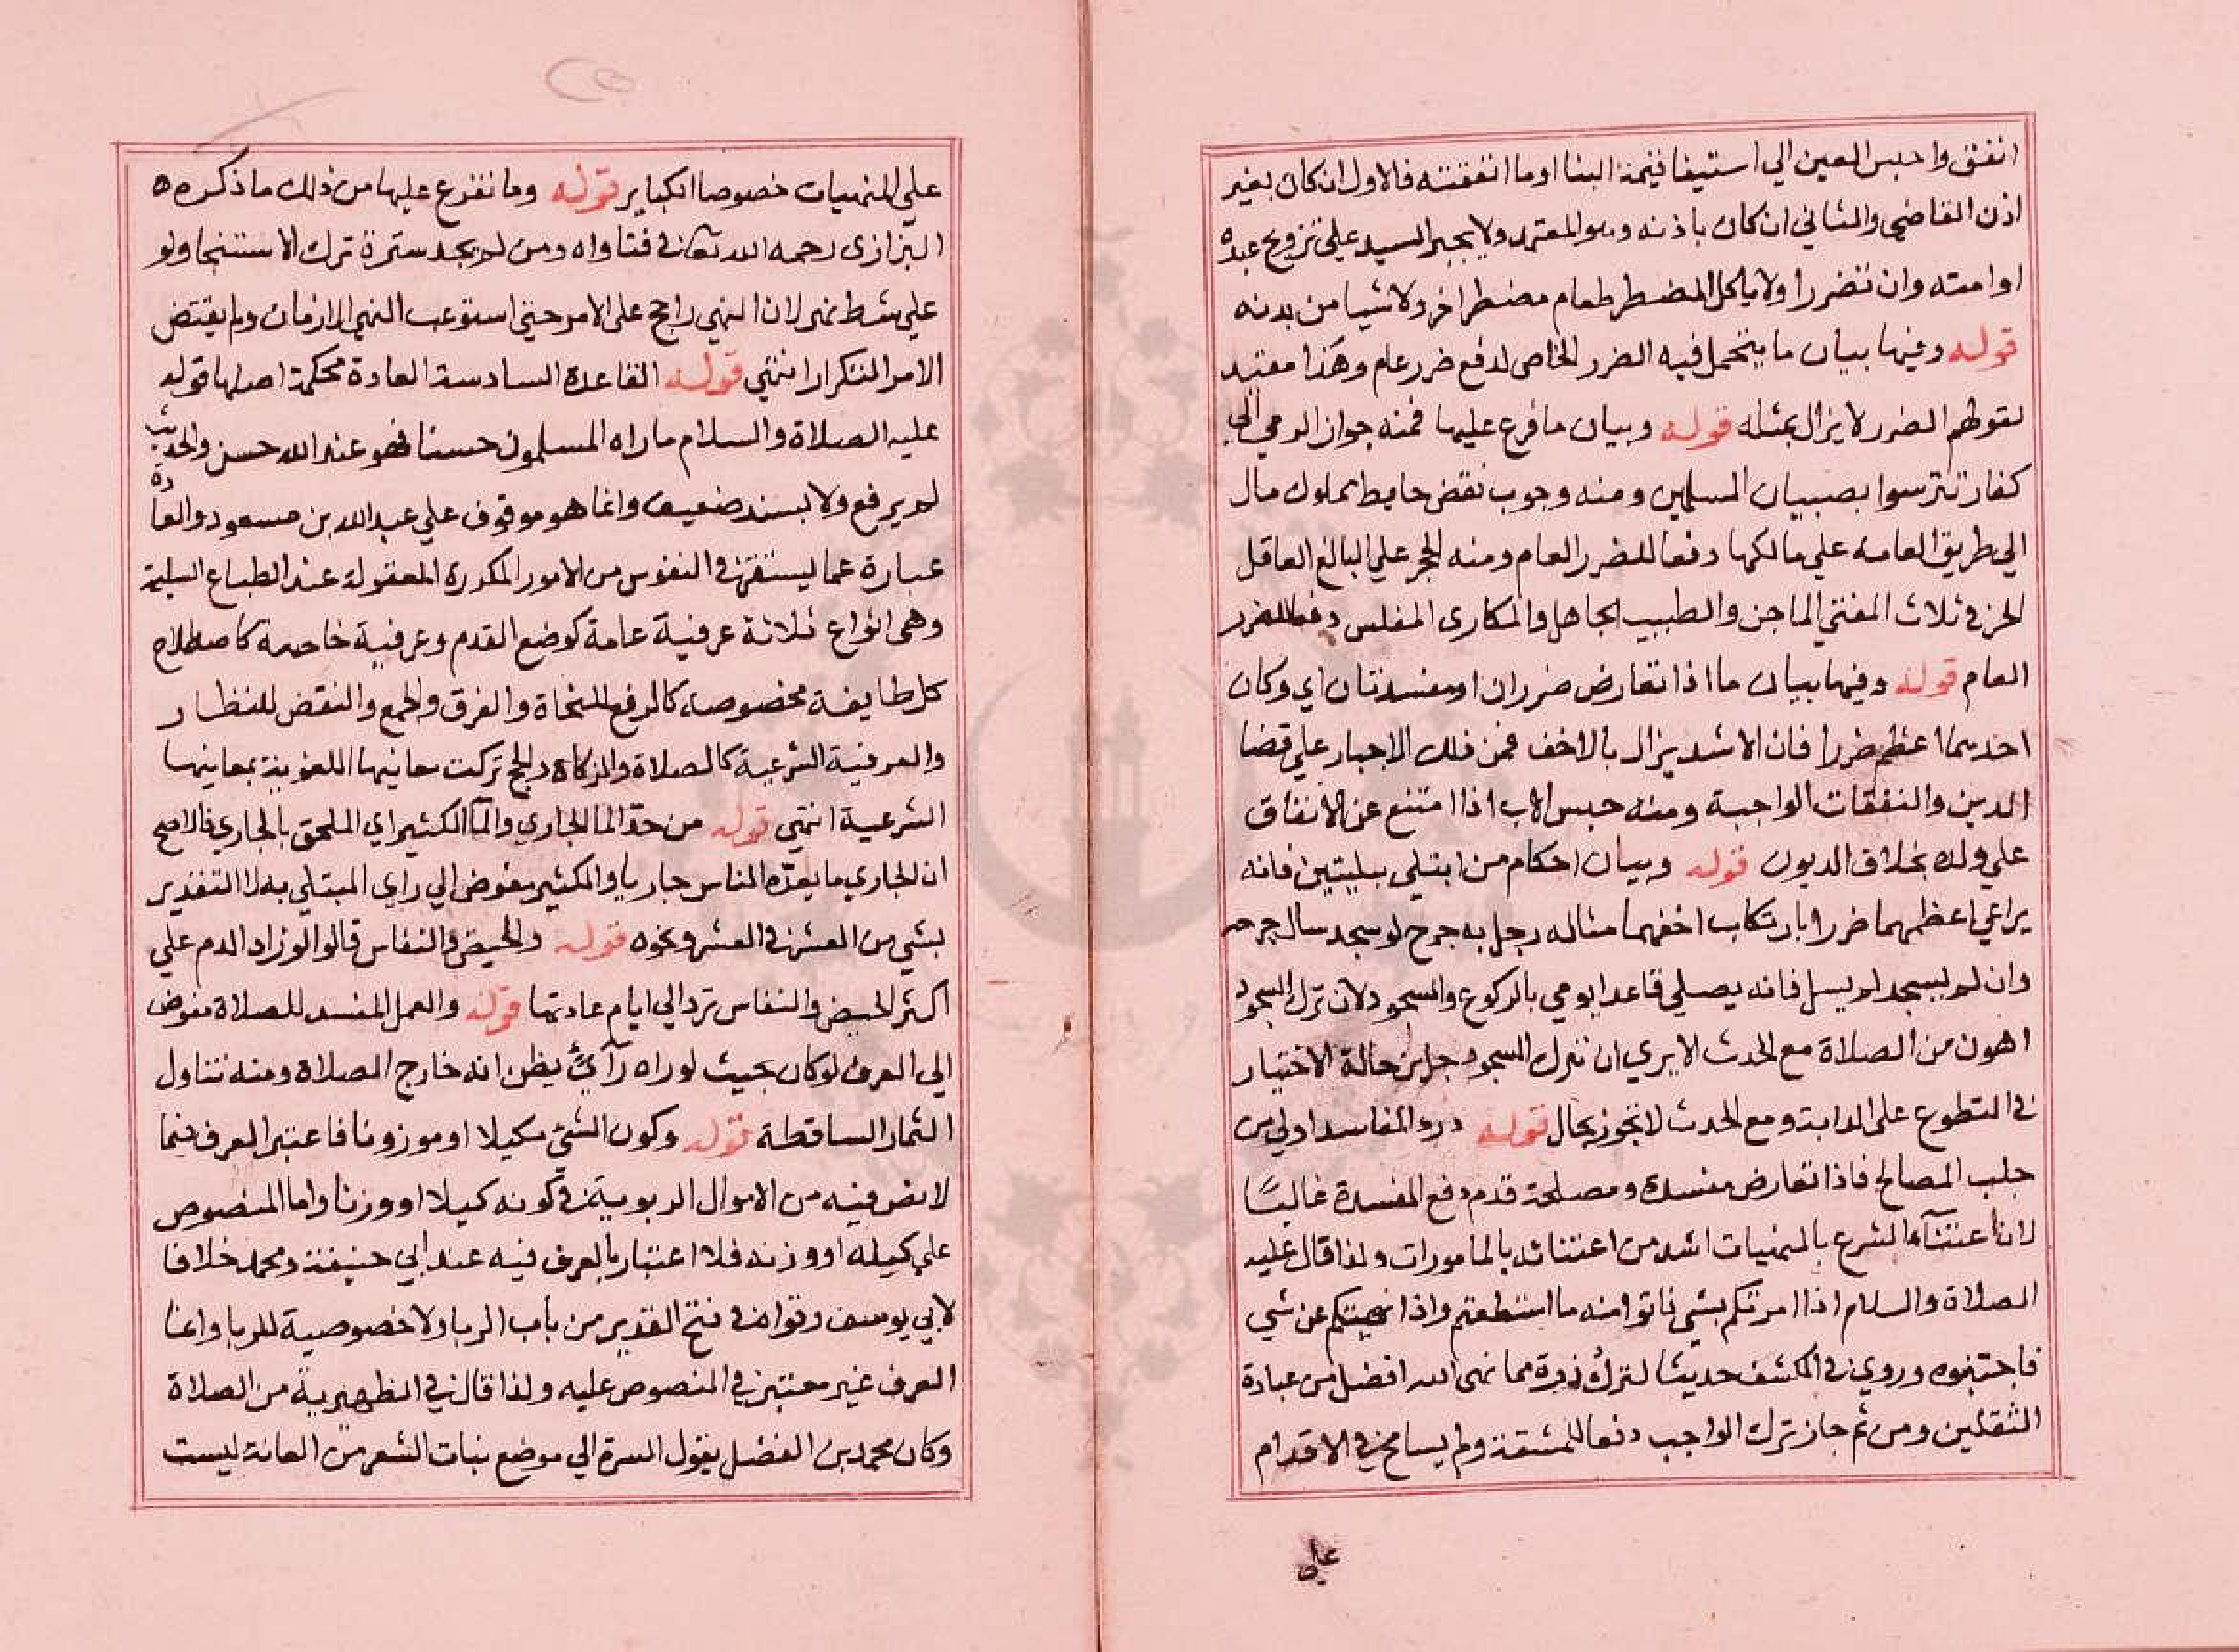 انفق واحبس العين الي استيفا قيمة البنا او ما انفقته فالاول ان كان بغير
اذن القاضي والثاني ان كان باذنه وهو المعتمد ولا يجبر السيد علي تزويج عبده
او امته وان تضررا ولا ياكل المضطر طعام مضطر اخر ولا شيا من بدنه
قوله وفيها بيان ما يتحمل فيه الضرر الخاص لدفع ضرر عام وهذا مقيد
لقولهم الضرر لا يزال بمثله قوله وبيان ما فرع عليها فمنه جواز الرمي الي
كفار تترسوا بصبيان المسلمين ومنه وجوب نقض حايط مملوك مال
الي طريق العامه علي مالكها دفعا للضرر العام ومنه الحجر علي البالغ العاقل
الحر في ثلاث المفتي الماجن والطبيب الجاهل والمكاري المفلس دفعا للضرر
العام قوله وفيها بيان ما اذا تعارض ضرران او مفسدتان اي وكان
احدهما اعظم ضررا فان الاشد يزال بالاخف فمن ذلك الاجبار علي قضا
الدين والنفقات الواجبة ومنه حبس الاب اذا امتنع عن الانفاق
علي ولده بخلاف الديون قوله وبيان احكام من ابتلي ببليتين فانه
يراعي اعظمهما ضررا بارتكاب اخفهما مثاله رجل به جرح لو سجد سال جرحه
وان لم يسجد لم يسل فانه يصلي قاعدا يومي بالركوع والسجود لان ترك السجود
اهون من الصلاة مع الحدث الا يري ان ترك السجود جايز حالة الاختيار
في التطوع علي الدابة ومع الحدث لا تجوز بحال قوله درء المفاسد اولي من
جلب المصالح فاذا تعارض مفسدة ومصلحة قدم دفع المفسدة غالبًا
لان اعتناء الشرع بالمنهيات اشد من اعتنائه بالمامورات ولذا قال عليه
الصلاة والسلام اذا امرتكم بشي فاتوا منه ما استطعتم واذا نهيتكم عن شي
فاجتنبوه وروي في الكشف حديثا لترك ذرة مما نهي الله افضل من عبادة
الثقلين ومن ثم جاز ترك الواجب دفعا للمشقة ولم يسامح في الاقدام
علي
علي المنهيات خصوصا الكباير قوله وما نفرع عليها من ذلك ما ذكره
البزازي رحمه الله تعالي في فتاواه ومن لم يجد سترة ترك الاستنجا ولو
علي شط نهر لان النهي راجح علي الامر حتي استوعب النهي الازمان ولم يقتض
الامر التكرار انتهي قوله القاعدة السادسة العادة محكمة اصلها قوله
عليه الصلاة والسلام ما راه المسلمون حسنا فهو عند الله حسن والحديث
لم يرفع ولا بسند ضعيف وانما هو موقوف علي عبدالله بن مسعود والعادة
عبارة عما يستقر في النفوس من الامور المكررة المعقولة عند الطباع السليمة
وهي انواع ثلاثة عرفية عامة كوضع القدم وعرفية خاصة كاصطلاح
كل طايفة مخصوصة كالرفع للنحاة والفرق والجمع والنقض للنظار
والعرفية الشرعية كالصلاة والزكاة والحج تركت معانيها اللغوية بمعانيها
الشرعية انتهي قوله من حد الما الجاري والما الكثير اي الملحق بالجاري فالاصح
ان الجاري ما يعده الناس جاريا والكثير مفوض الي راي المبتلي به لا التقدير
بشي من العشر في العشر ونحوه قوله والحيض والنفاس قالوا لو زاد الدم علي
اكثر الحيض والنفاس ترد الي ايام عادتها قوله والعمل المفسد للصلاة مفوض
الي العرف لو كان بحيث لو راه رآيٌ يظن انه خارج الصلاة ومنه تناول
الثمار الساقطة قوله وكون الشي مكيلا او موزونا فاعتبر العرف فيما
لا نص فيه من الاموال الربوية في كونه كيلا او وزنا واما المنصوص
علي كيله او وزنه فلا اعتبار بالعرف فيه عند ابي حنيفة ومحمد خلافا
لابي يوسف وقواه في فتح القدير من باب الربا ولا خصوصية للربا وانما
العرف غير معتبر في المنصوص عليه ولذا قال في الظهيرية من الصلاة
وكان محمد بن الفضل يقول السرة الي موضع نبات الشعر من العانة ليست